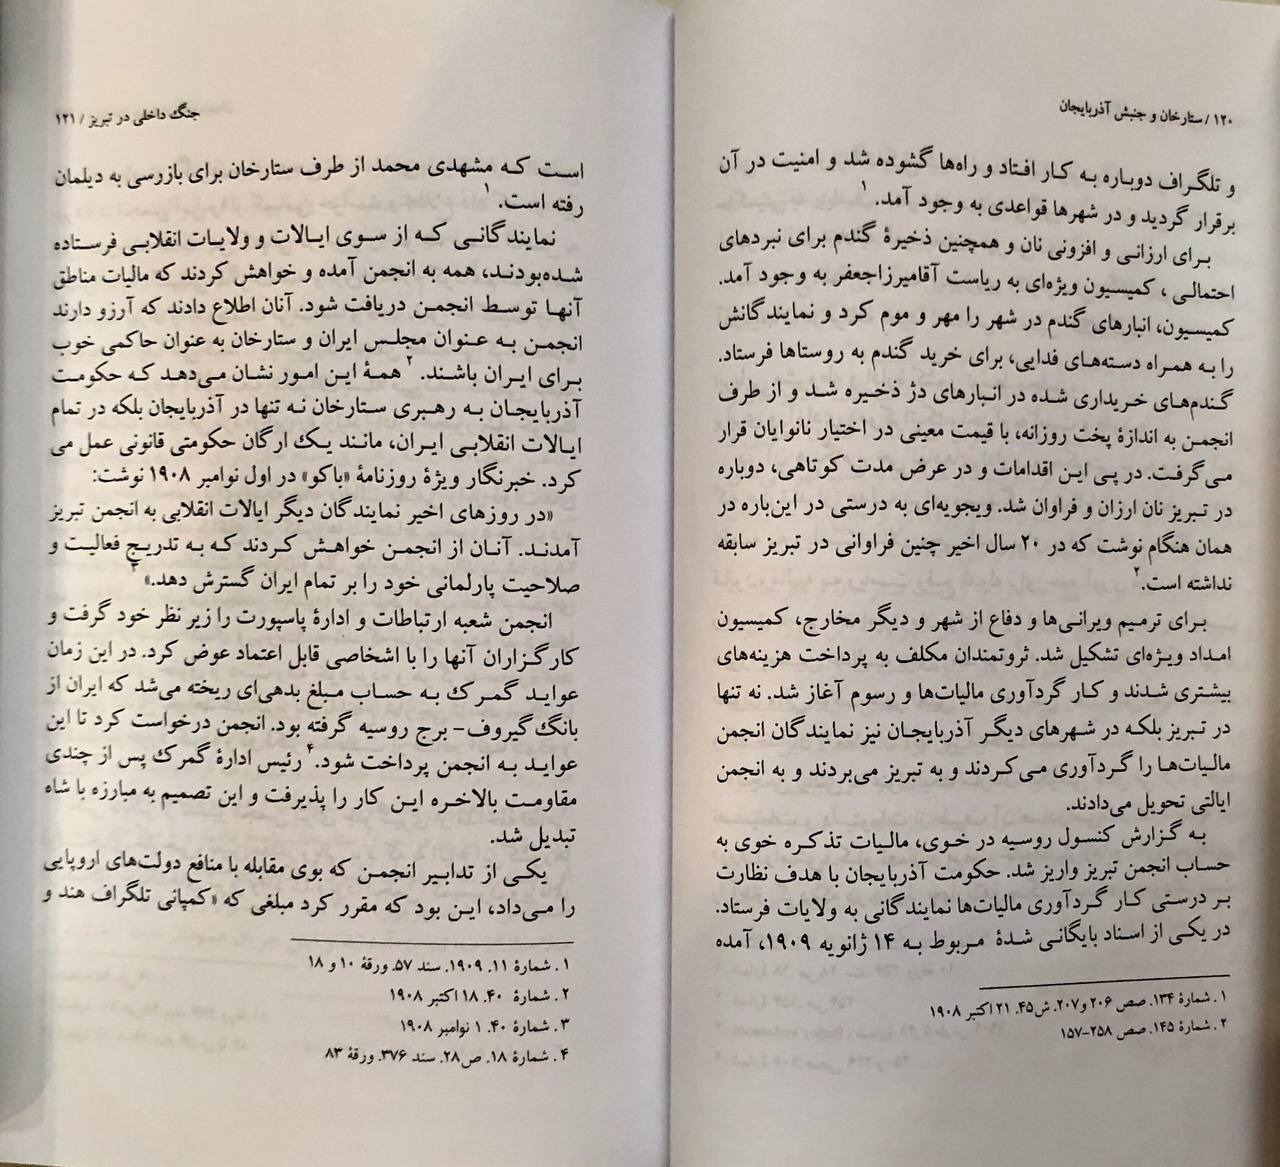 ۱۲۰/ ستارخان و جنبش آذربایجان
و تلگراف دوباره به کار افتاد و راه‌ها گشوده شد و امنیت در آن
برقرار گردید و در شهرها قواعدی به وجود آمد.۱
برای ارزانی و افزونی نان و همچنین ذخیرهٔ گندم برای نبردهای
احتمالی، کمیسیون ویژه‌ای به ریاست آقامیرزاجعفر به وجود آمد.
کمیسیون، انبارهای گندم در شهر را مهر و موم کرد و نمایندگانش
را به همراه دسته‌های فدایی، برای خرید گندم به روستاها فرستاد.
گندم‌های خریداری شده در انبارهای دژ ذخیره شد و از طرف
انجمن به اندازهٔ پخت روزانه، با قیمت معینی در اختیار نانوایان قرار
می‌گرفت. در پی این اقدامات و در عرض مدت کوتاهی، دوباره
در تبریز نان ارزان و فراوان شد. ویجویه‌ای به درستی در این‌باره در
همان هنگام نوشت که در ۲۰ سال اخیر چنین فراوانی در تبریز سابقه
نداشته است.۲
برای ترمیم ویرانی‌ها و دفاع از شهر و دیگر مخارج، کمیسیون
امداد ویژه‌ای تشکیل شد. ثروتمندان مکلف به پرداخت هزینه‌های
بیشتری شدند و کار گردآوری مالیات‌ها و رسوم آغاز شد. نه تنها
در تبریز بلکه در شهرهای دیگر آذربایجان نیز نمایندگان انجمن
مالیات‌ها را گردآوری می‌کردند و به تبریز می‌بردند و به انجمن
ایالتی تحویل می‌دادند.
به گزارش کنسول روسیه در خوی، مالیات تذکره خوی به
حساب انجمن تبریز واریز شد. حکومت آذربایجان با هدف نظارت
بر درستی کار گردآوری مالیات‌ها نمایندگانی به ولایات فرستاد.
در یکی از اسناد بایگانی شدهٔ مربوط به ۱۴ ژانویه ۱۹۰۹، آمده
۱. شمارهٔ ۱۳۴. صص ۲۰۶ و ۲۰۷. ش۴۵. ۲۱ اکتبر ۱۹۰۸
۲. شمارهٔ ۱۴۵. صص ۲۵۸-۱۵۷
جنگ داخلی در تبریز / ۱۲۱
است که مشهدی محمد از طرف ستارخان برای بازرسی به دیلمان
رفته است.۱
نمایندگانی که از سوی ایالات و ولایات انقلابی فرستاده
شده‌بودند، همه به انجمن آمده و خواهش کردند که مالیات مناطق
آنها توسط انجمن دریافت شود. آنان اطلاع دادند که آرزو دارند
انجمن به عنوان مجلس ایران و ستارخان به عنوان حاکمی خوب
برای ایران باشند.۲ همهٔ این امور نشان می‌دهد که حکومت
آذربایجان به رهبری ستارخان نه تنها در آذربایجان بلکه در تمام
ایالات انقلابی ایران، مانند یک ارگان حکومتی قانونی عمل می
کرد. خبرنگار ویژهٔ روزنامهٔ «باکو» در اول نوامبر ۱۹۰۸ نوشت:
«در روزهای اخیر نمایندگان دیگر ایالات انقلابی به انجمن تبریز
آمدند. آنان از انجمن خواهش کردند که به تدریج فعالیت و
صلاحیت پارلمانی خود را بر تمام ایران گسترش دهد.»۳
انجمن شعبه ارتباطات و ادارهٔ پاسپورت را زیر نظر خود گرفت و
کارگزاران آنها را با اشخاصی قابل اعتماد عوض کرد. در این زمان
عواید گمرک به حساب مبلغ بدهی‌ای ریخته می‌شد که ایران از
بانگ گیروف- برج روسیه گرفته بود. انجمن درخواست کرد تا این
عواید به انجمن پرداخت شود.۴ رئیس ادارهٔ گمرک پس از چندی
مقاومت بالاخره این کار را پذیرفت و این تصمیم به مبارزه با شاه
تبدیل شد.
یکی از تدابیر انجمن که بوی مقابله با منافع دولت‌های اروپایی
را می‌داد، این بود که مقرر کرد مبلغی که «کمپانی تلگراف هند و
۱. شمارهٔ ۱۱. ۱۹۰۹. سند ۵۷. ورقهٔ ۱۰ و ۱۸
۲. شمارهٔ ۴۰. ۱۸ اکتبر ۱۹۰۸
۳. شمارهٔ ۴۰. ۱ نوامبر ۱۹۰۸
۴. شمارهٔ ۱۸. ص۲۸. سند ۳۷۶. ورقهٔ ۸۳